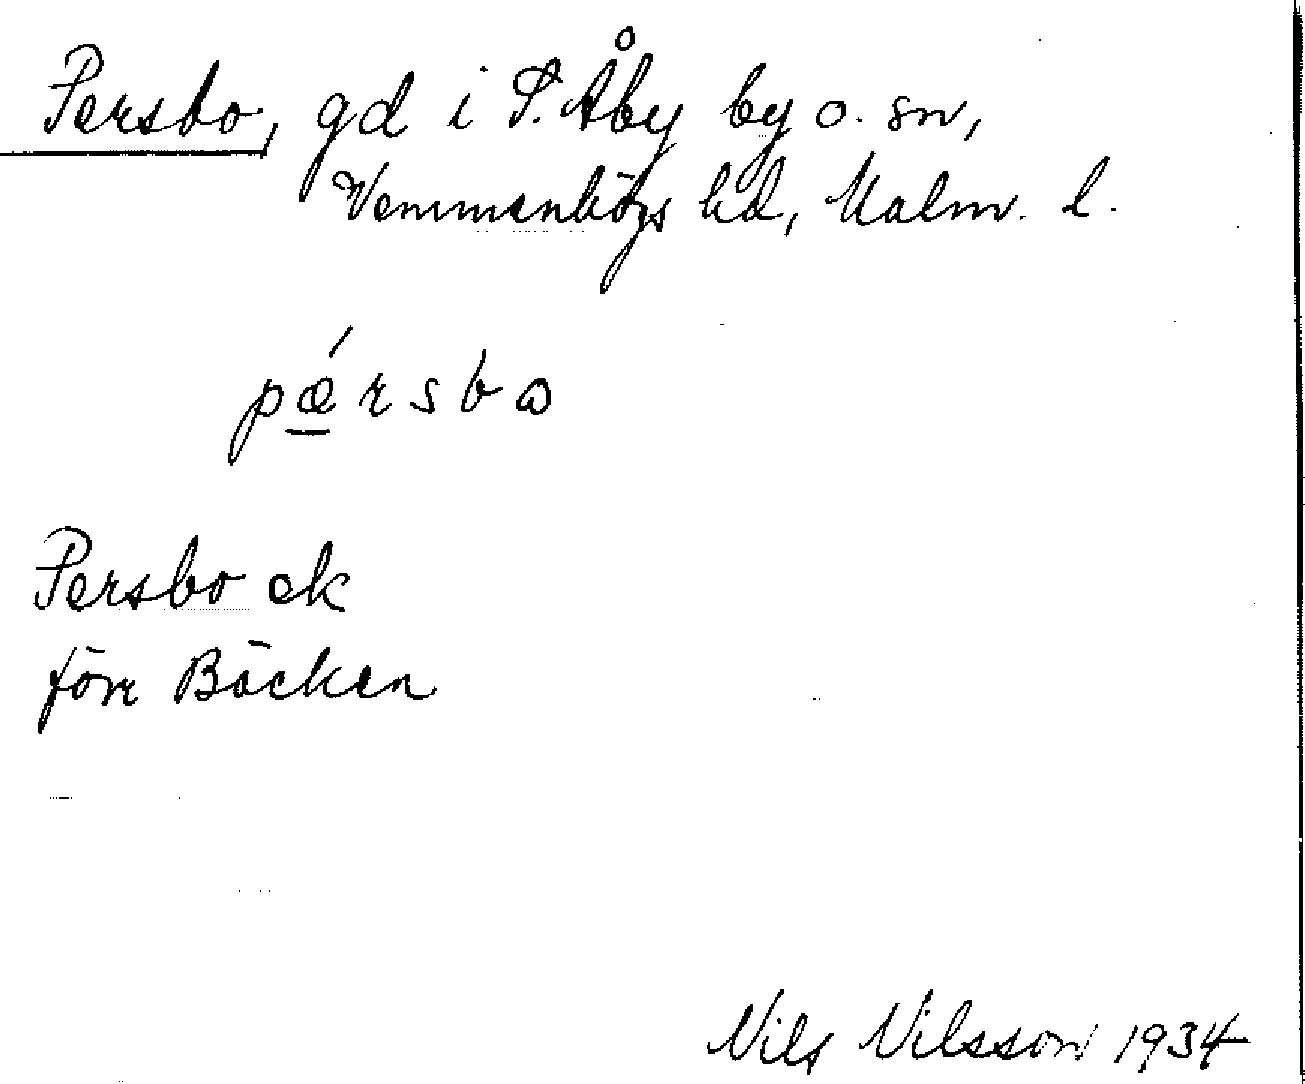 Persbo, gd i S. Åby by o. sn,
Vemmenhögs hd, Malm. l.
pǽrsbꞷ
Persbo ek
före Bäcken
Nils Nilsson 1934